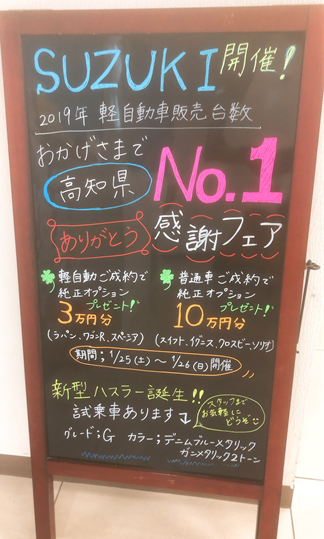 SUZUKI 開催!
2019年 軽自動車販売台数
おかげさまで
高知県 No.1
ありがとう 感謝フェア
軽自動ご成約で
純正オプション
プレゼント!
3万円分
(ラパン、ワゴンR、スペーシア)
普通車ご成約で
純正オプション
プレゼント!
10万円分
(スイフト、イグニス、クロスビー、ソリオ)
期間;1/25(土)〜1/26(日)開催
新型ハスラー誕生!!
試乗車あります
スタッフまで
お気軽に
どうぞ
グレード;G カラー;デニムブルーメタリック
ガンメタリック2トーン